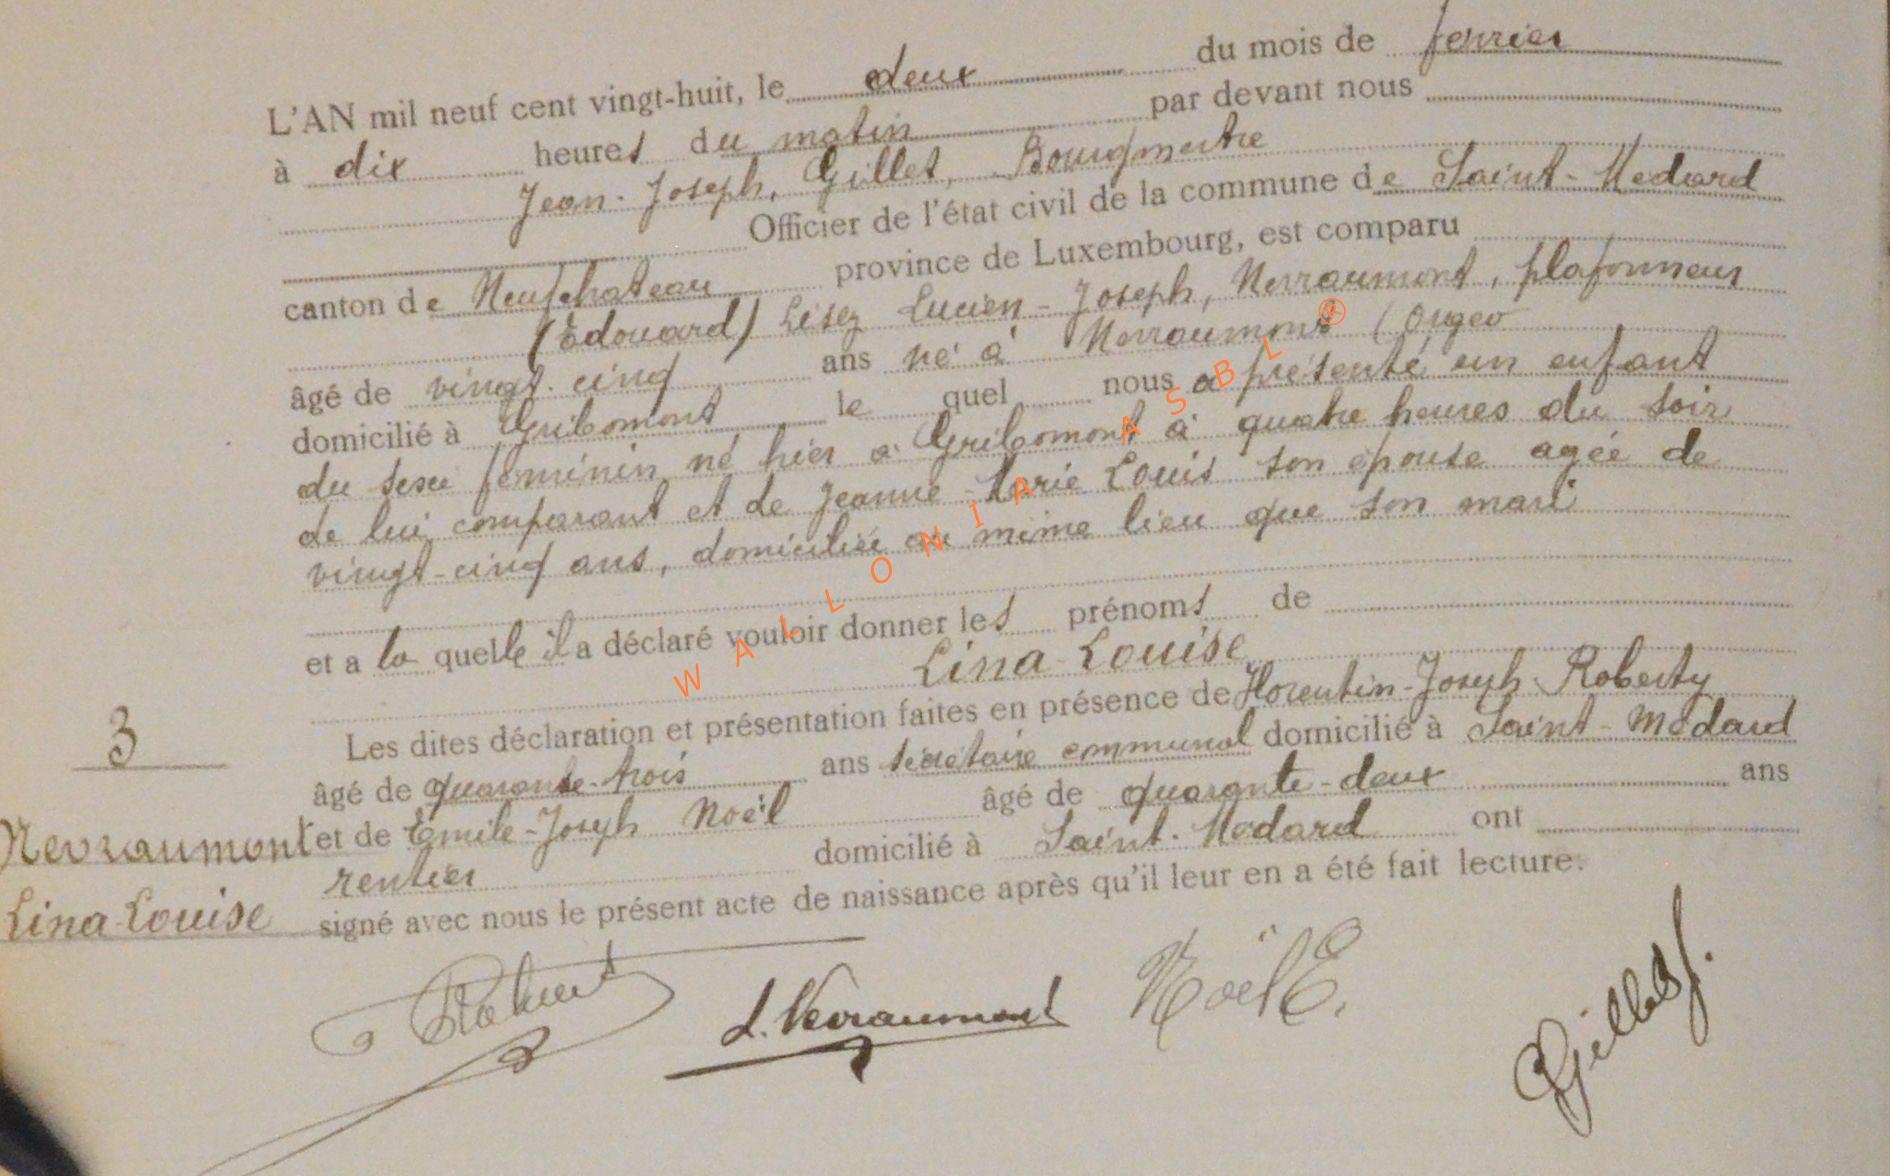 L'AN mil neuf cent vingt-huit, le deux du mois de fevrier
à dix heures du matin par devant nous
Jean-Joseph, Gillet, Bourgmestre
Officier de l'état civil de la commune de Saint-Medard
canton de Neufchateau province de Luxembourg, est comparu
(Edouard) Lisez Lucien-Joseph, Nevraumont, plafonneur
âgé de vingt-cinq ans né à Nevraumont (Orgeo
domicilié à Gribomont le quel nous a présenté un enfant
du sexe féminin né hier a Gribomont à quatre heures du soir
de lui comparant et de Jeanne-Marie Louis son épouse agée de
vingt-cinq ans, domiciliée au même lieu que son mari
et a la quelle il a déclaré vouloir donner les prénoms de
Lina-Louise
Les dites déclaration et présentation faites en présence de Florentin-Joseph Roberty
âgé de quarante-trois ans secrétaire communal domicilié à Saint-Médard
et de Emile-Joseph Noël âgé de quarante-deux ans
rentier domicilié à Saint-Medard ont
signé avec nous le présent acte de naissance après qu'il leur en a été fait lecture.
3
Nevraumont
Lina-Louise
L. Nevraumont
Noël E.
Gillet J.
WALLONIA ASBL ®